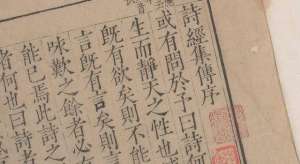 詩經集傳序
或有問於予曰詩何
生而靜天之性也
既有欲矣則不能
言既有言矣則言
咏歎之餘者必有
能已焉此詩之
者何也曰詩者